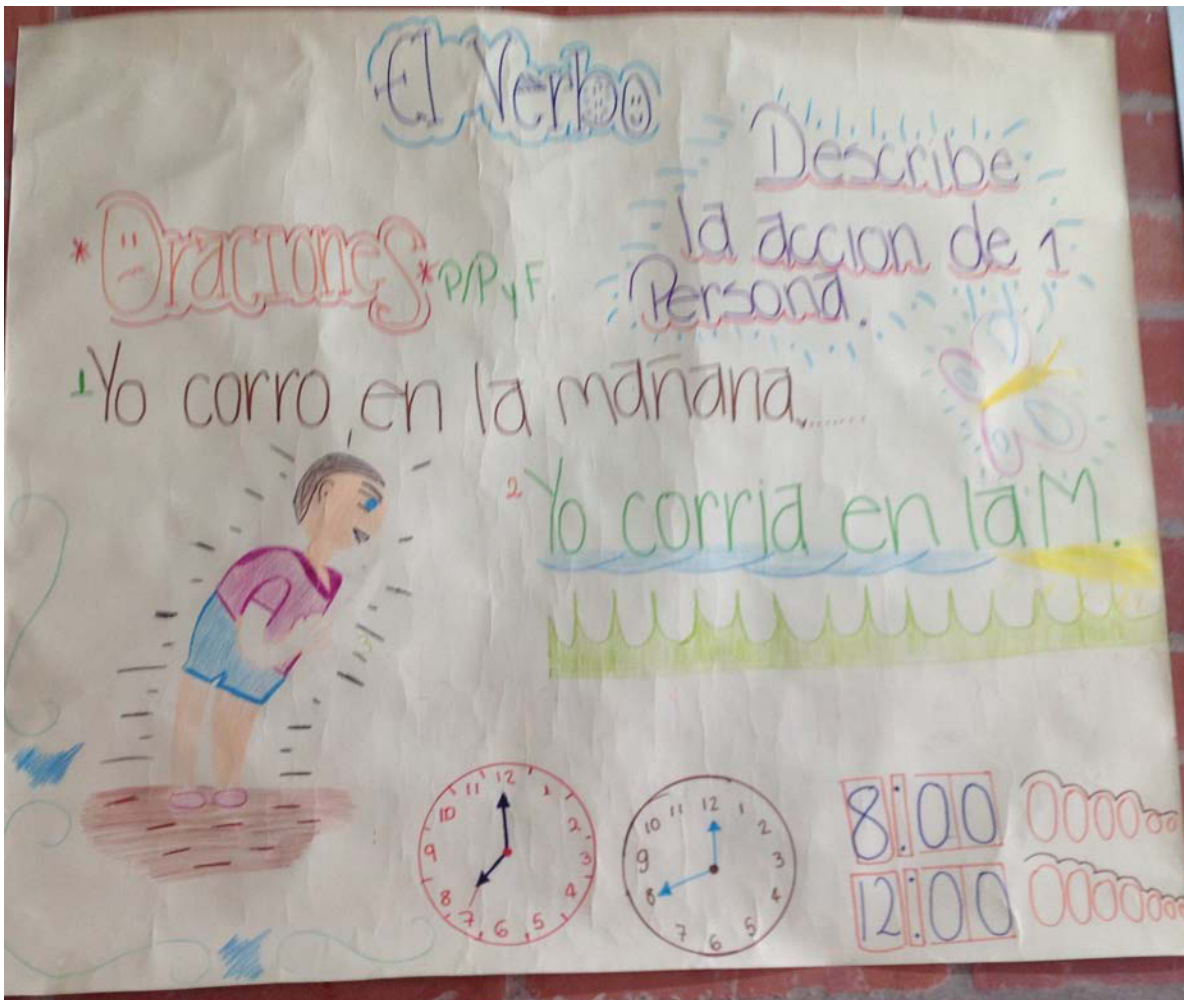 El Verbo
Describe
la accion de 1
Persona.
* Oraciones * P/P y F
1 Yo corro, en la mañana........
2 Yo corria en la M.
12
11 1
10 2
9 3
8 4
7 5
6
12
11 1
10 2
9 3
8 4
7 5
6
8:00
12:00